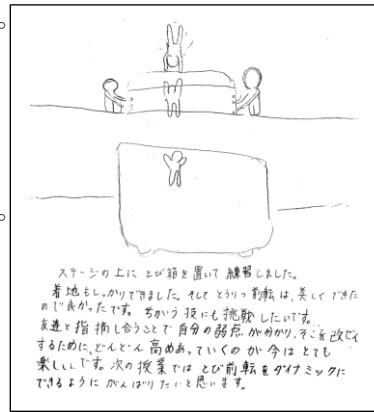 ステージの上に とび箱を置いて 練習しました。
着地もしっかりできました。そして とうりつ前転は、美しく できた
ので良かったです。ちがう技にも挑戦したいです。
友達と指摘し合うことで自分の弱点が分かり、そこを改ぜん
するために、どんどん高めあっていくのが今はとても
楽しいです。次の授業では とび前転をダイナミックに
できるように がんばりたいと思います。